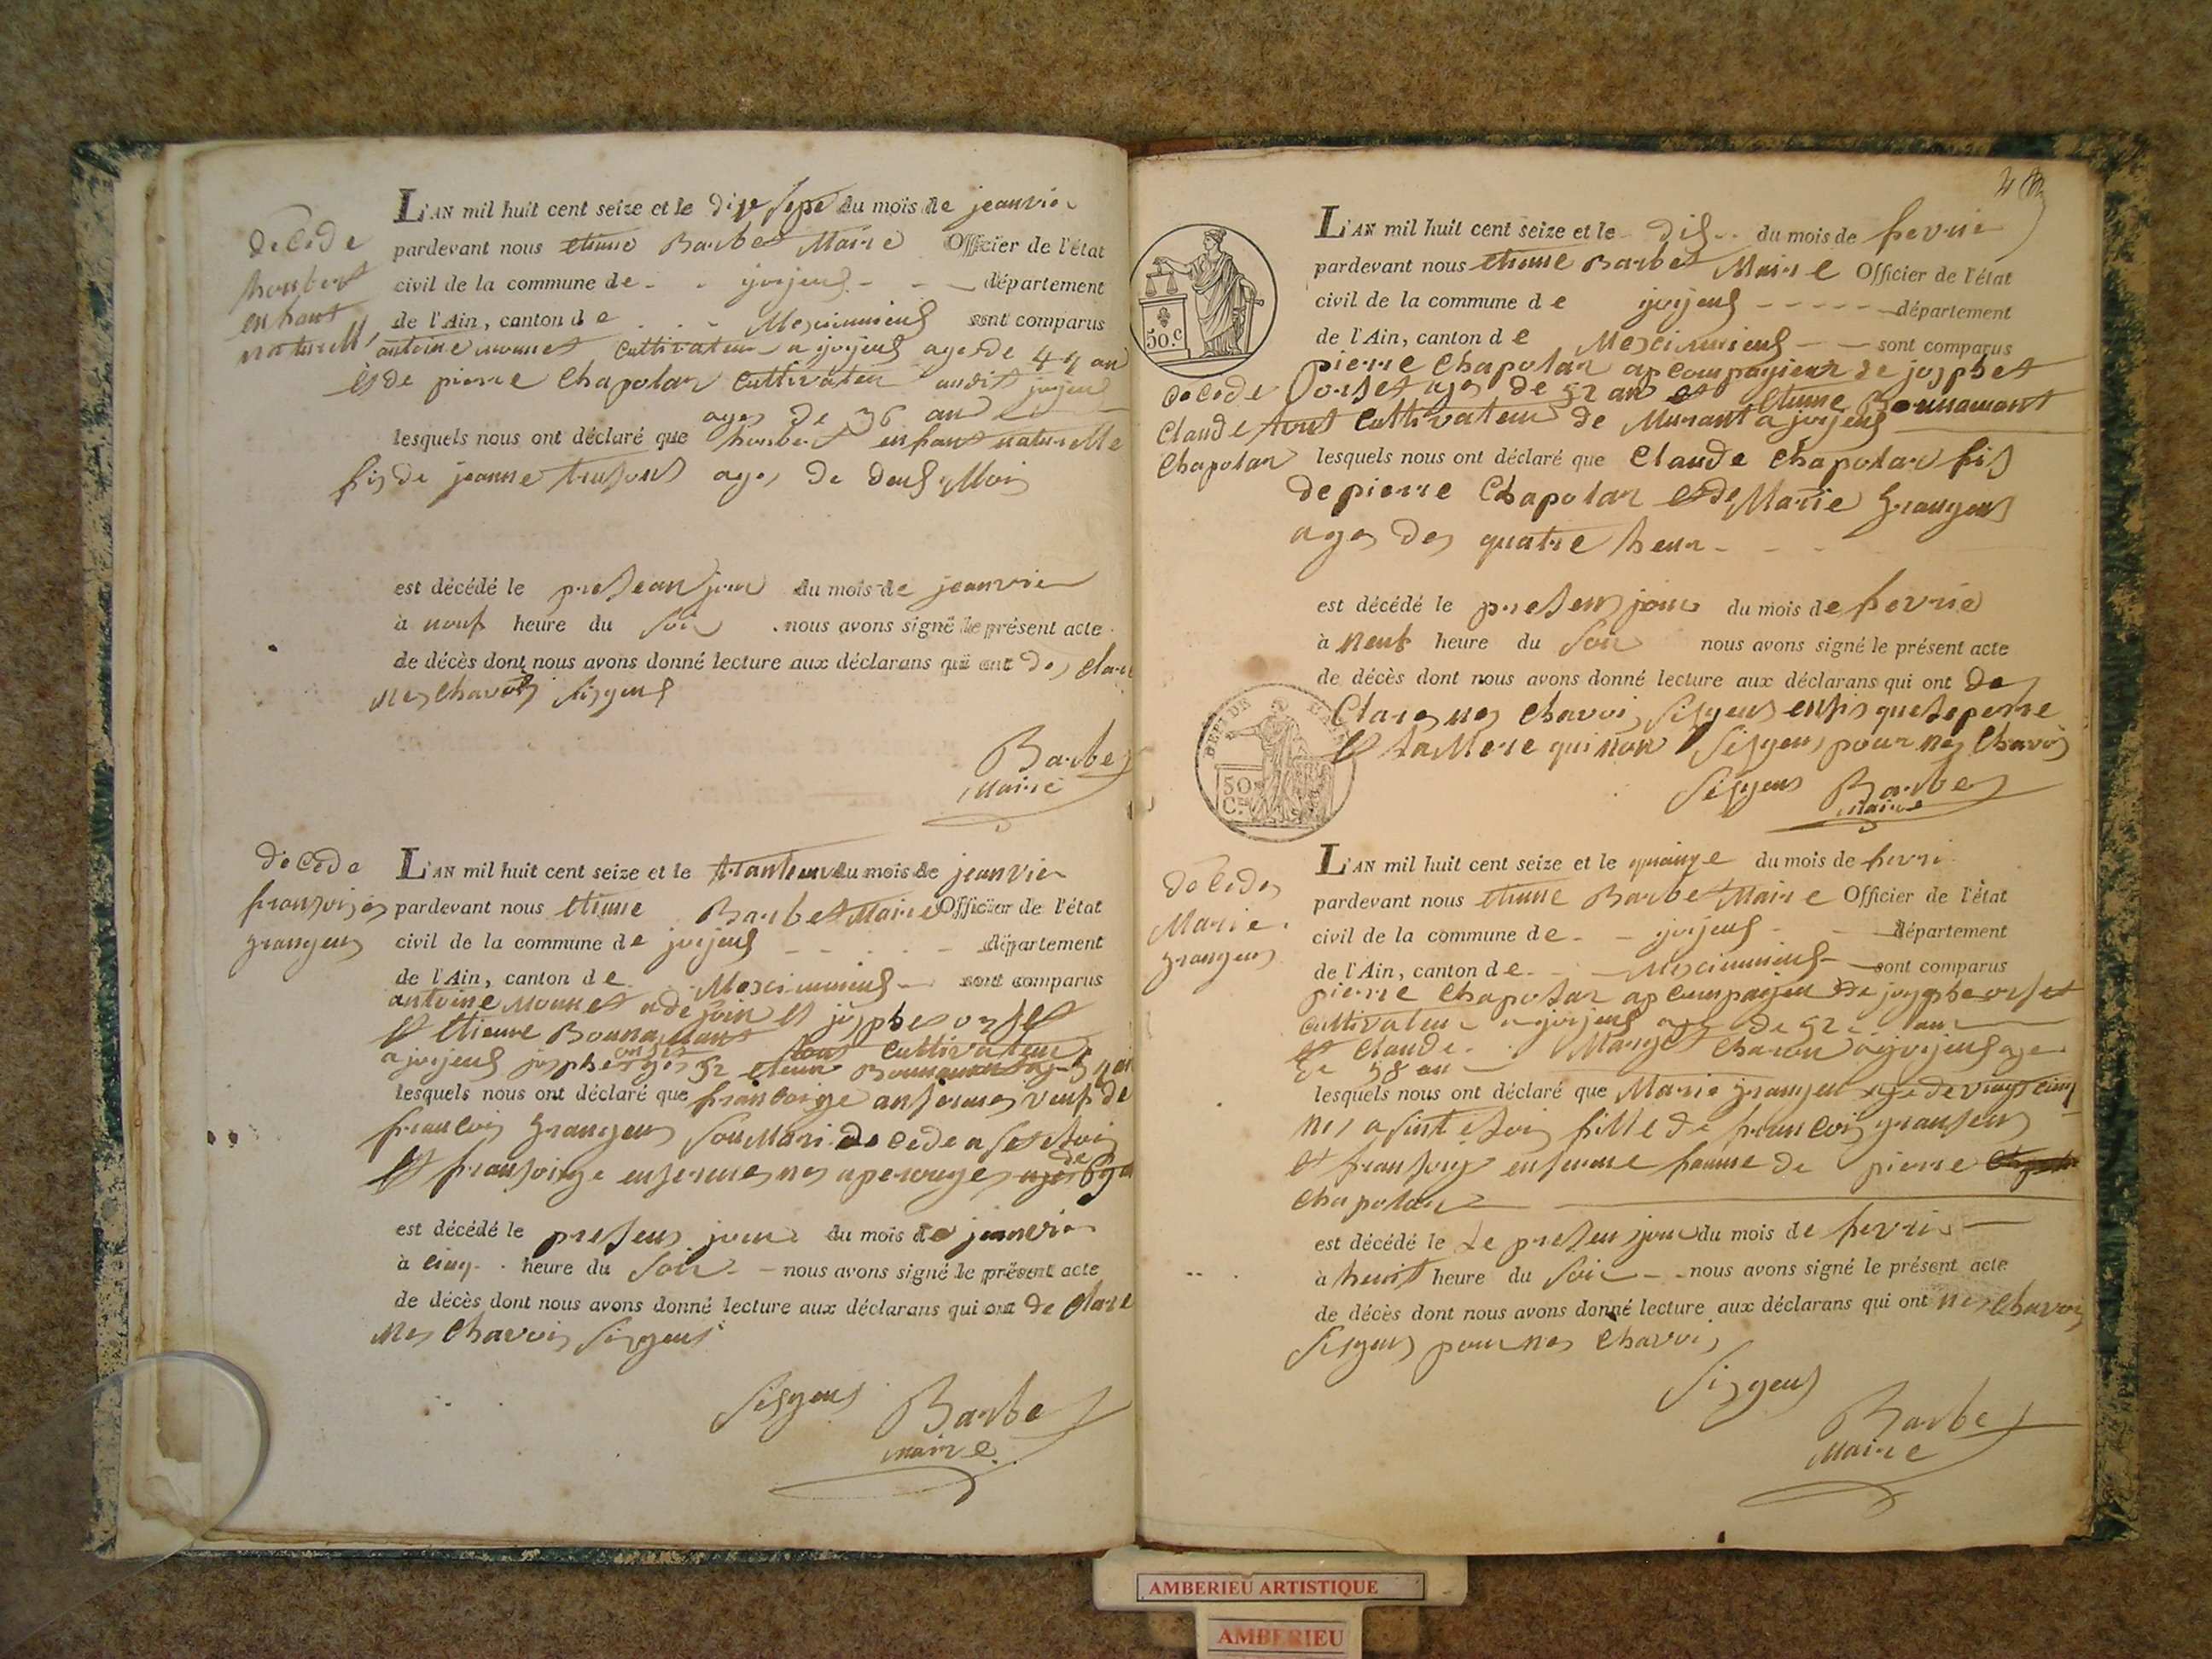 decede
honbert
enfant
naturell
L'AN mil huit cent seize et le dixe sept du mois de jeanvier
pardevant nous etienne Barbet Maire Officier de l'état
civil de la commune de joyjeux département
de l'Ain, canton de Meximieux sont comparus
antoine monnet cultivateur a joyjeux ages de 44 an
et de pierre Chapolar cultivateur audit joyjeu
ages de 36 an
lesquels nous ont déclaré que honbert enfant naturelle
fis de jeanne ages de deux Moi
est décédé le presean jour du mois de jeanvier
à nouf heure du soir nous avons signé le présent acte
de décès dont nous avons donné lecture aux déclarans qui ont des clare
nes chavoir signeux
Barbet
Maire
decede
fransoises
grangeus
L'AN mil huit cent seize et le du mois de jeanvier
pardevant nous etienne Barbet Maire Officier de l'état
civil de la commune de joyjeux département
de l'Ain, canton de Meximieux sont comparus
antoine Monnet adejoin et josphe orset
et Etienne Bonnamant tout cultivateur
a joyjeux josphe orset ages 52 etienne Bonnamant
lesquels nous ont déclaré que francoise ansermes veuf de
francois grangeus son Mari decede a
et fransoise ensermes nes a perouges ages de
est décédé le presens jour du mois de jeanvier
à cinq heure du soir nous avons signé le présent acte
de décès dont nous avons donné lecture aux déclarans qui ont de clare
nes chavoir signeus
signeus Barbet
maire
50.C
decede
Claude
Chapolar
L'AN mil huit cent seize et le dis du mois de fevrie
pardevant nous etienne Barbet Maire Officier de l'état
civil de la commune de joyjeux département
de l'Ain, canton de Meximieux sont comparus
pierre Chapolar apcompagier de josphet
orset ages de 52 an et etienne Bonnamont
tout cultivateur de Murant a joyjeux
lesquels nous ont déclaré que Claude Chapolar fis
de pierre Chapolar et de Marie grangeus
ages des quatre heur
est décédé le presens jour du mois de fevrie
à neuf heure du soir nous avons signé le présent acte
de décès dont nous avons donné lecture aux déclarans qui ont de
Clares nes chavoir signeus ensis que le perre
et la Mere qui non signeus pour nes chavoir
signeus Barbet
maire
50
C.
decedes
Marie
grangeus
L'AN mil huit cent seize et le quinze du mois de fevri
pardevant nous etienne Barbet Maire Officier de l'état
civil de la commune de joyjeux département
de l'Ain, canton de Meximieux sont comparus
pierre Chapolar apcompagien de josphe orset
cultivateur a joyjeux age de 52 an
et Claude Manget charon a joyjeux age
de 58 an
lesquels nous ont déclaré que Marie grangeu age de vingt cinq
nes a sint eloi fille de francois grangeus
et fransoise enserme famme de pierre
Chapolar
est décédé le Le presens jour du mois de fevrie
à heuit heure du soir nous avons signé le présent acte
de décès dont nous avons donné lecture aux déclarans qui ont nes chavoir
signeus pour nes chavoir
signeus
Barbet
Maire
AMBERIEU ARTISTIQUE
AMBERIEU